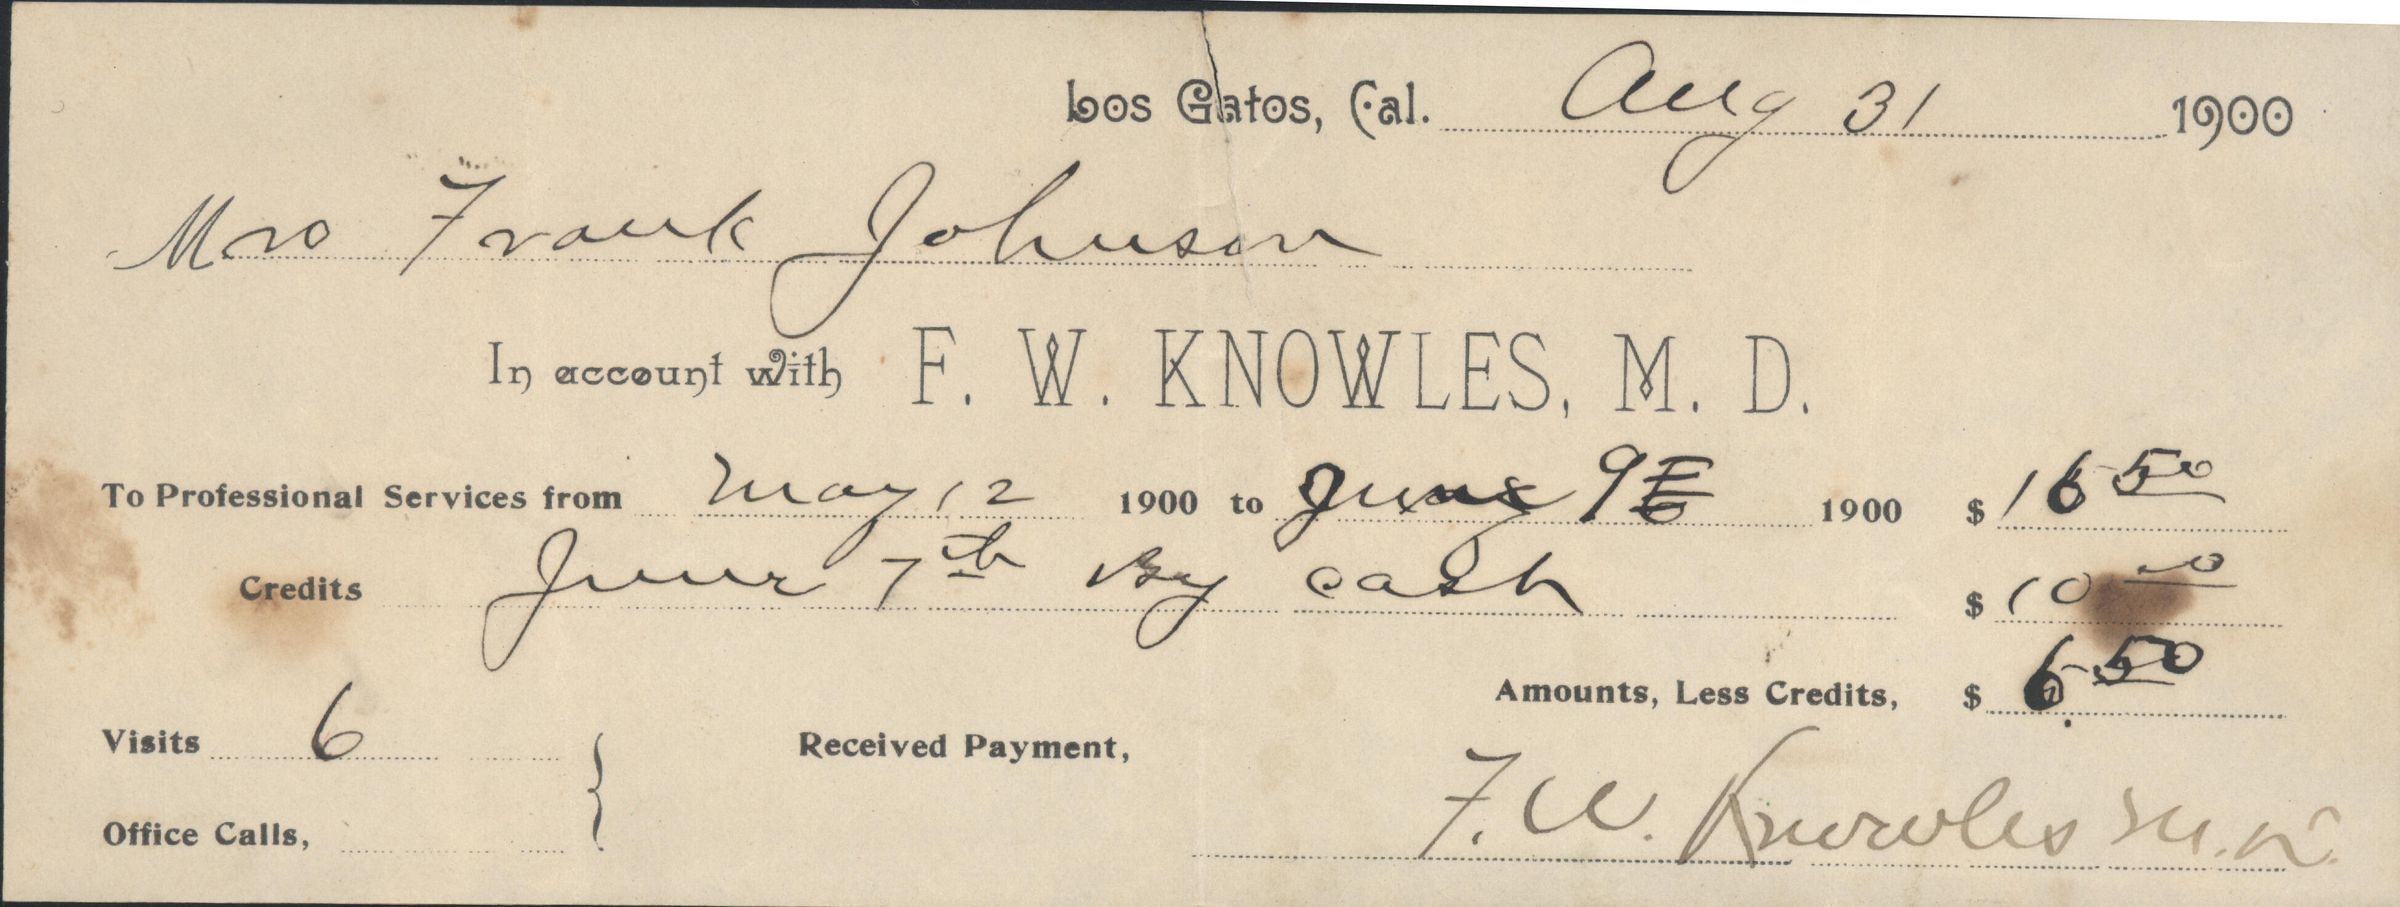 Los Gatos, Cal. Aug 31 1900
Mrs Frank Johnson
In account with F. W. KNOWLES, M. D.
To Professional Services from May 12 1900 to June 9 1900 $ 16 50
Credits June 7th By cash $ 10 00
Amounts, Less Credits, $ 6 50
Visits 6
Received Payment,
Office Calls,
F. W. Knowles M. D.